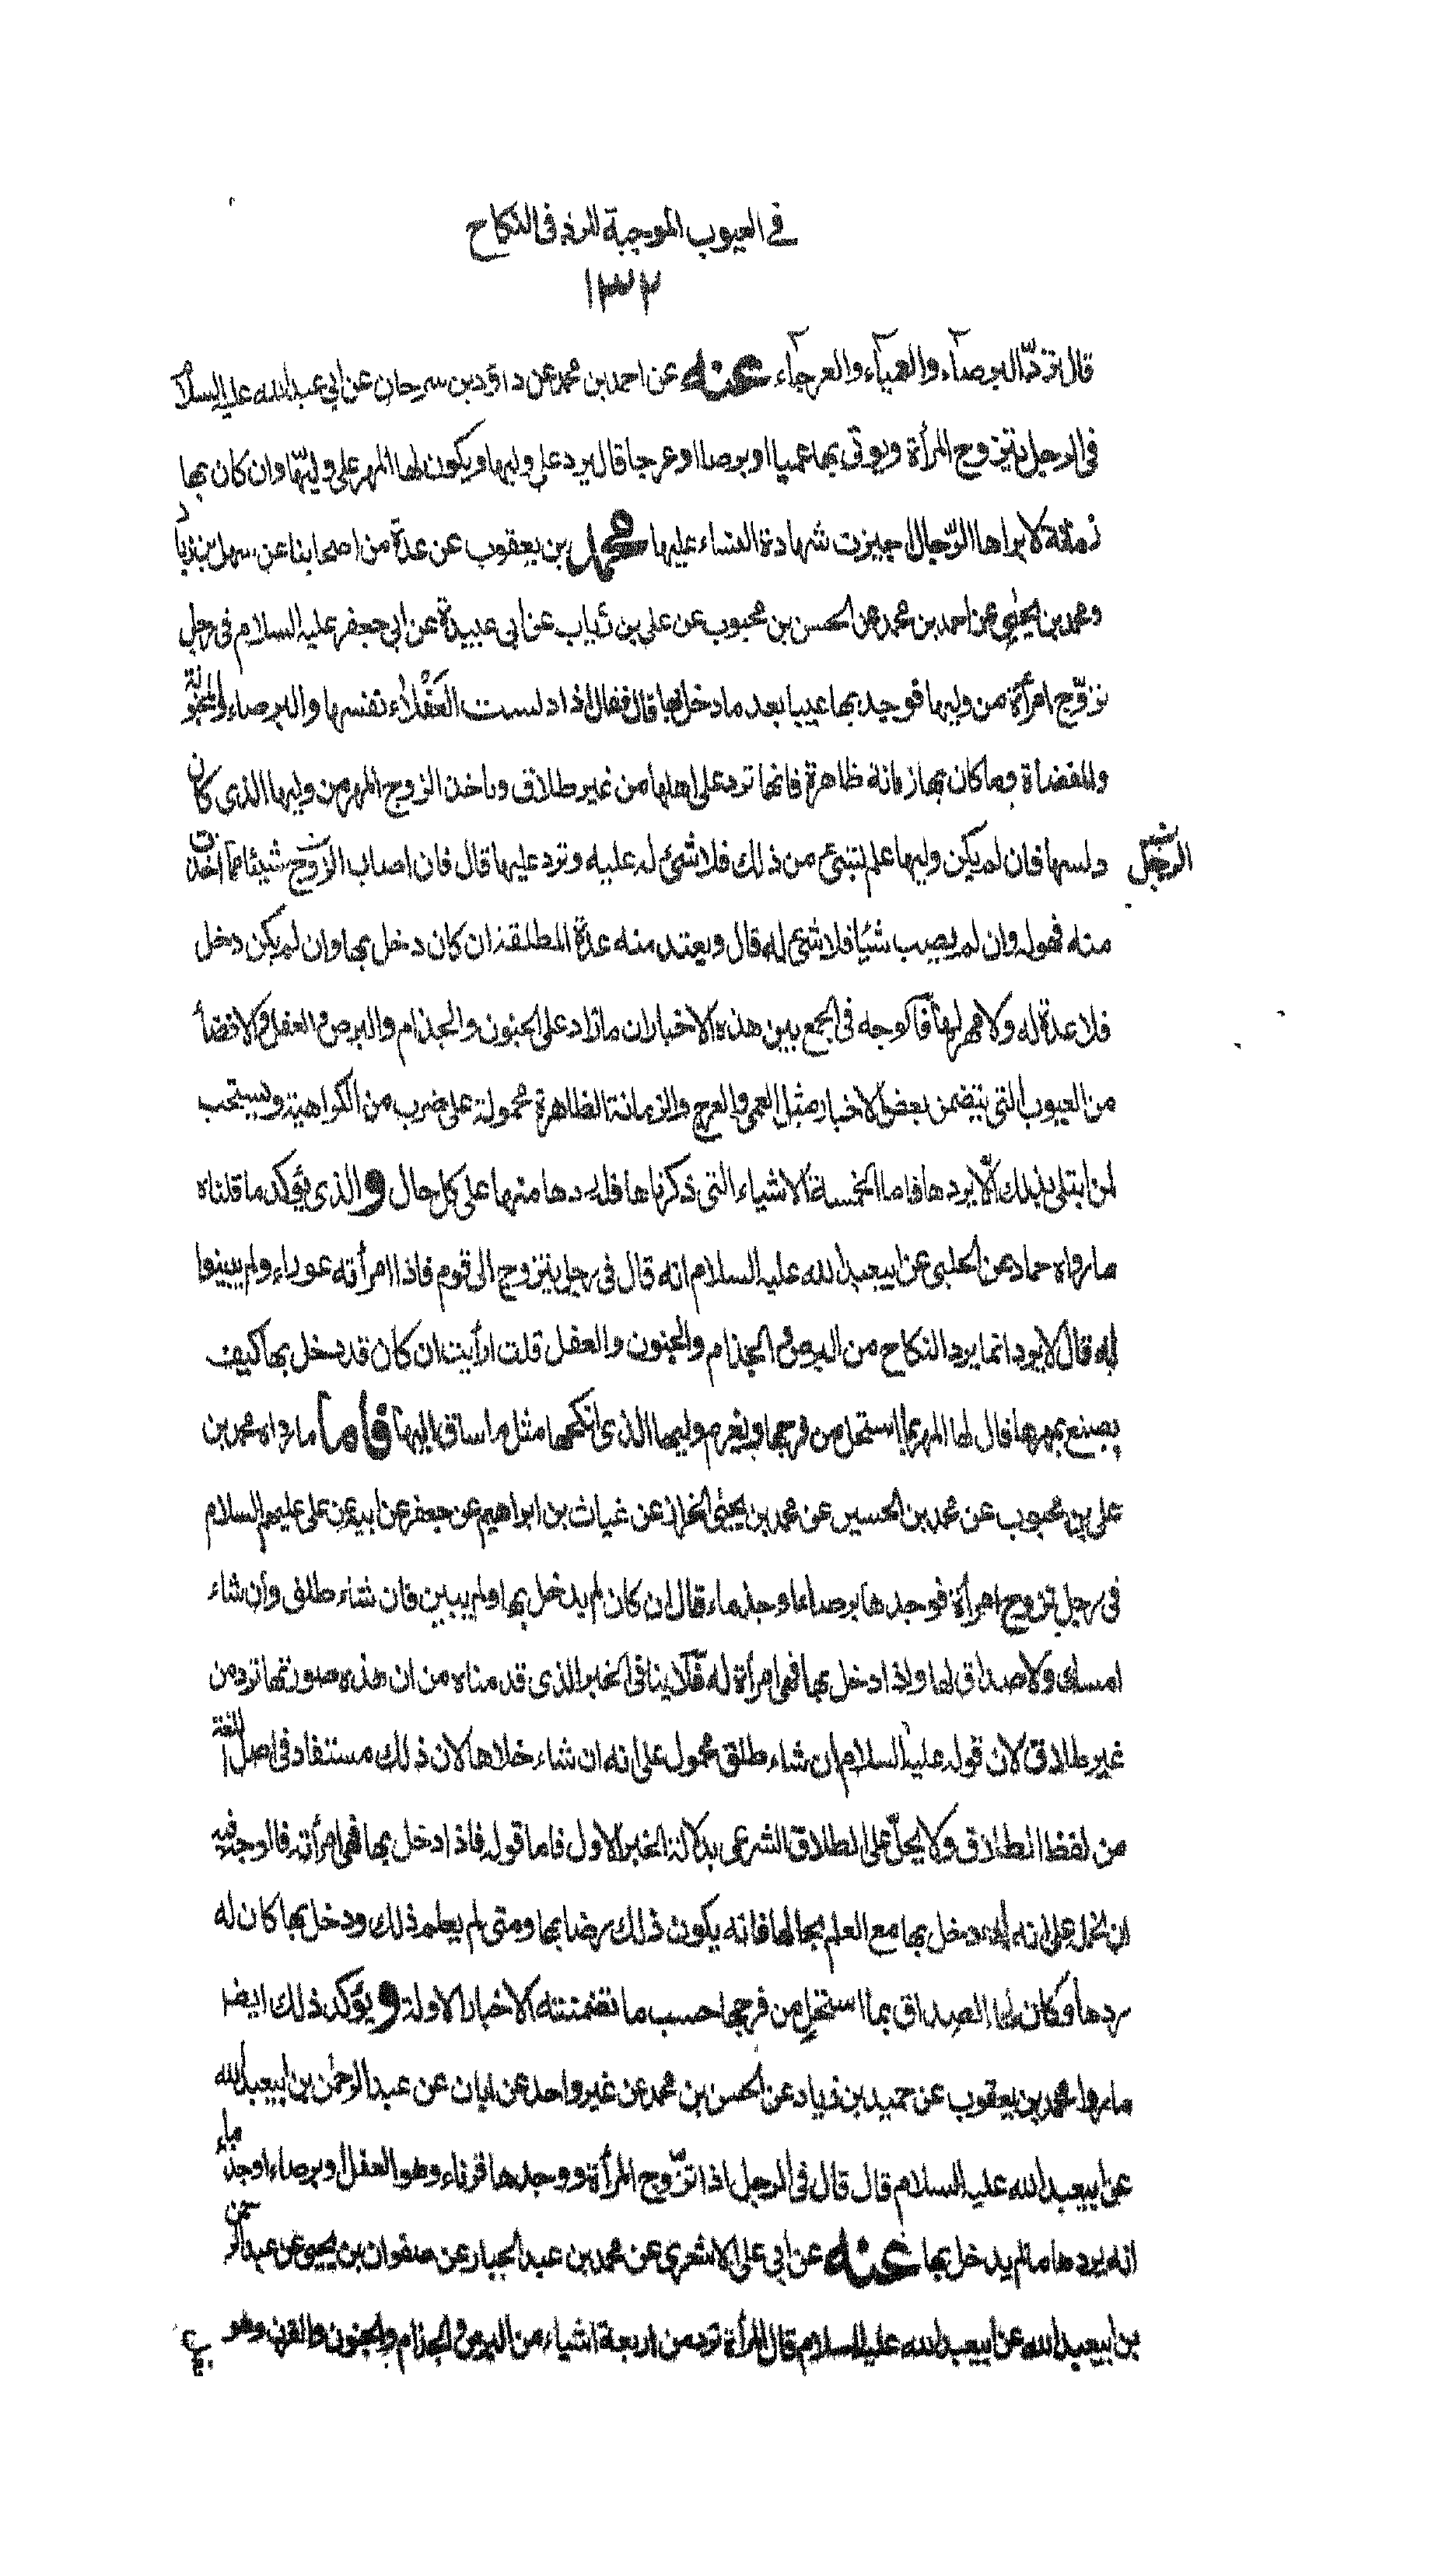 في العيوب الموجبة للرد في النكاح
١٣٢
قال ترد البرصاء والعمياء والعرجاء عنه عن احمد بن محمد عن داود بن سرحان عن ابي عبدالله عليه السلام
في الرجل يتزوج المرأة ويوتى بها عميا او برصا او عرجا قال يرد على وليها ويكون لها المهر على وليها وان كان بها
زمانة لا يراها الرجال اجيزت شهادة النساء عليها محمد بن يعقوب عن عدة من اصحابنا عن سهل بن زياد
ومحمد بن يحيى عن احمد بن محمد عن الحسن بن محبوب عن علي بن رئاب عن ابي عبيدة عن ابي جعفر عليه السلام في رجل
تزوج امرأة من وليها فوجد بها عيبا بعد ما دخل بها قال فقال اذا دلست العفلاء نفسها والبرصاء والمجنونة
والمفضاة وما كان بها زمانة ظاهرة فانها ترد على اهلها من غير طلاق وياخذ الزوج المهر من وليها الذي كان
دلسها فان لم يكن وليها علم بشيء من ذلك فلا شئ له عليه وترد عليها قال فان اصاب الزوج شيئا مما اخذت
الرجل
منه فهو له وان لم يصب شيئا فلا شئ له قال ويعتد منه عدة المطلقة ان كان دخل بها وان لم يكن دخل
فلا عدة له ولا مهر لها فالوجه في الجمع بين هذه الاخبار ان ما زاد على الجنون والجذام والبرص والعفل والافضا
من العيوب التي يتضمن بعض الاخبار مثل العمى والعرج والزمانة الظاهرة محمولة على ضرب من الكراهية ويستحب
لمن ابتلي بذلك الا يردها فاما الخمسة الاشياء التي ذكرناها فله ردها منها على كل حال والذي يؤكد ما قلناه
ما رواه حماد عن الحلبي عن ابيعبدالله عليه السلام انه قال في رجل يتزوج الى قوم فاذا امرأته عوراء ولم يبينوا
له قال لا يرد انما يرد النكاح من البرص والجذام والجنون والعفل قلت ارأيت ان كان قد دخل بها كيف
يصنع بمهرها قال لها المهر بما استحل من فرجها ويغرم وليها الذي انكحها مثل ما ساق اليها فاما ما رواه محمد بن
علي بن محبوب عن محمد بن الحسين عن محمد بن يحيى الخزاز عن غياث بن ابراهيم عن جعفر عن ابيه عن علي عليهم السلام
في رجل تزوج امرأة فوجدها برصاء او جذماء قال ان كان لم يدخل بها ولم يبين فان شاء طلق وان شاء
امسك ولا صداق لها واذا دخل بها فهي امرأة له فلا ينافي الخبر الذي قدمناه من ان هذه صورتها ترد من
غير طلاق لان قوله عليه السلام ان شاء طلق محمول على انه ان شاء خلاها لان ذلك مستفاد في اصل اللغة
من لفظ الطلاق ولا يحل على الطلاق الشرعي بدلالة الخبر الاول فاما قوله فاذا دخل بها فهي امرأته فالوجه فيه
ان نحمل على انه اذا دخل بها مع العلم بحالها فانه يكون ذلك رضا بها ومتى لم يعلم ذلك ودخل بها كان له
ردها وكان لها الصداق بما استحل من فرجها حسب ما تضمنته الاخبار الاولة ويؤكد ذلك ايضا
ما رواه محمد بن يعقوب عن حميد بن زياد عن الحسن بن محمد عن غير واحد عن ابان عن عبد الرحمن بن ابيعبدالله
عن ابيعبدالله عليه السلام قال قال في الرجل اذا تزوج المرأة ووجدها قرناء وهو العفل او برصاء او جذماء
انه يردها ما لم يدخل بها عنه عن ابي علي الاشعري عن محمد بن عبد الجبار عن صفوان بن يحيى عن عبد الرحمن
بن ابيعبدالله عن ابيعبدالله عليه السلام قال المرأة ترد من اربعة اشياء من البرص والجذام والجنون والقرن وهو